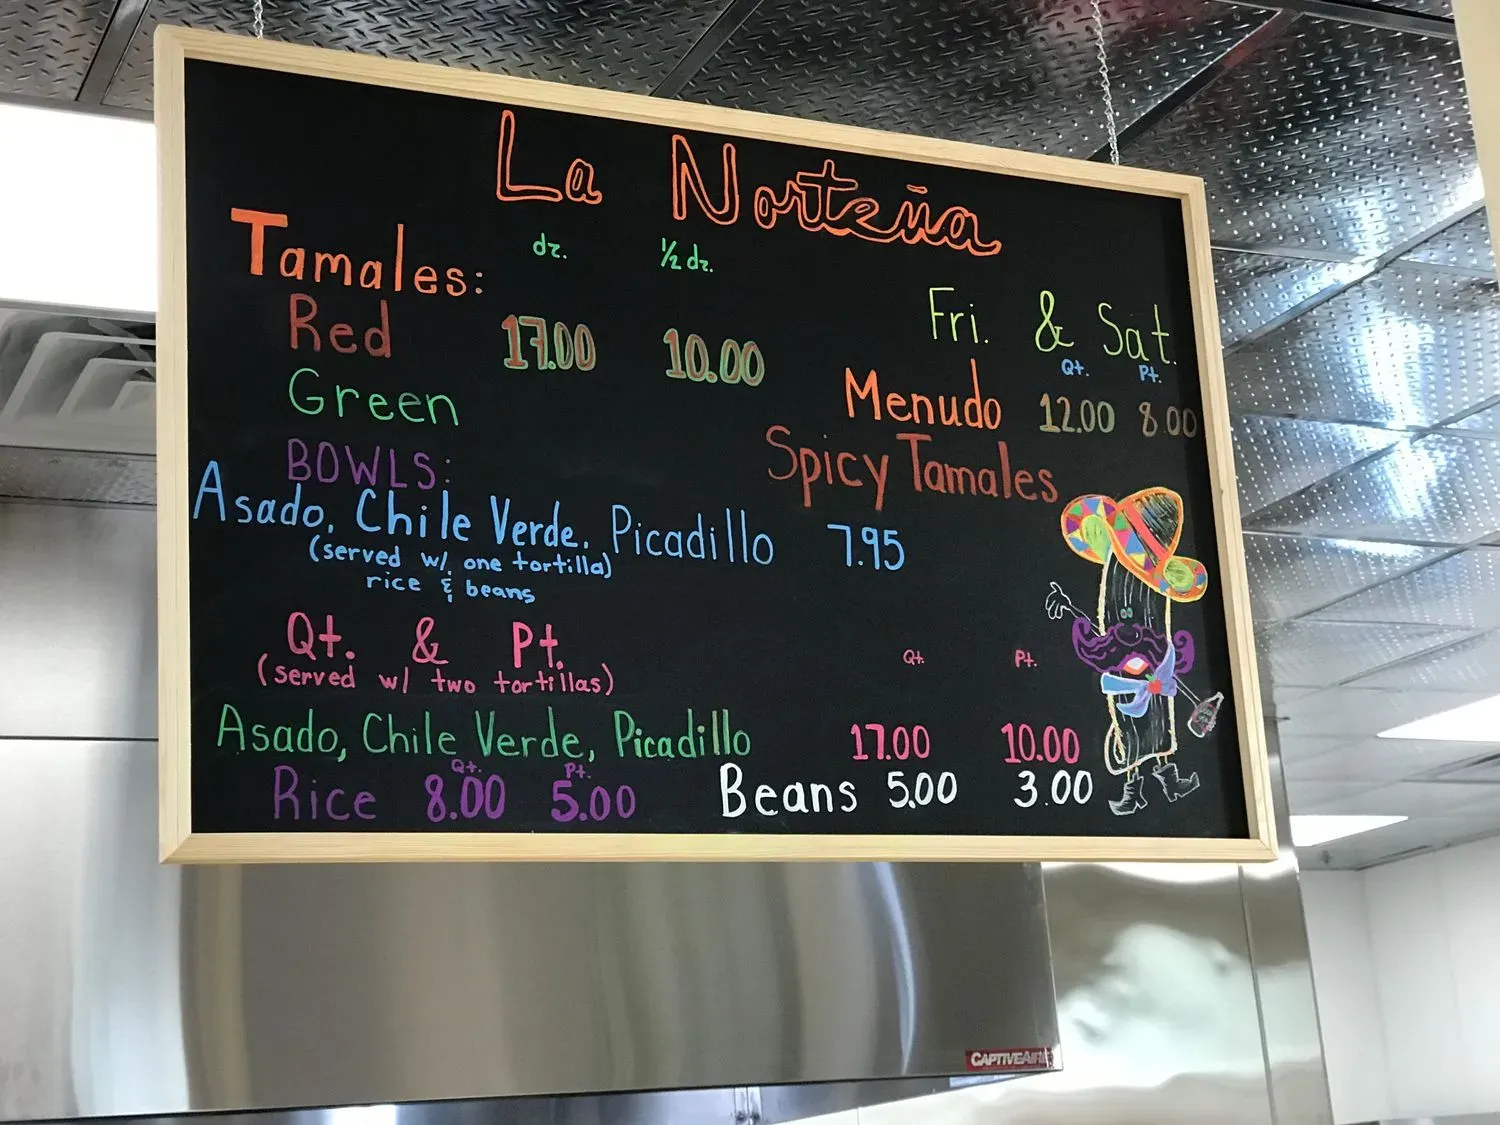 La Norteña
Tamales: dz. 1/2 dz.
Red 17.00 10.00
Green
Fri. & Sat.
Qt. Pt.
Menudo 12.00 8.00
Spicy Tamales
BOWLS:
Asado, Chile Verde, Picadillo 7.95
(served w/ one tortilla)
rice & beans
Qt. & Pt.
(served w/ two tortillas)
Qt. Pt.
Asado, Chile Verde, Picadillo 17.00 10.00
Qt. Pt.
Rice 8.00 5.00 Beans 5.00 3.00
CAPTIVEAIRE